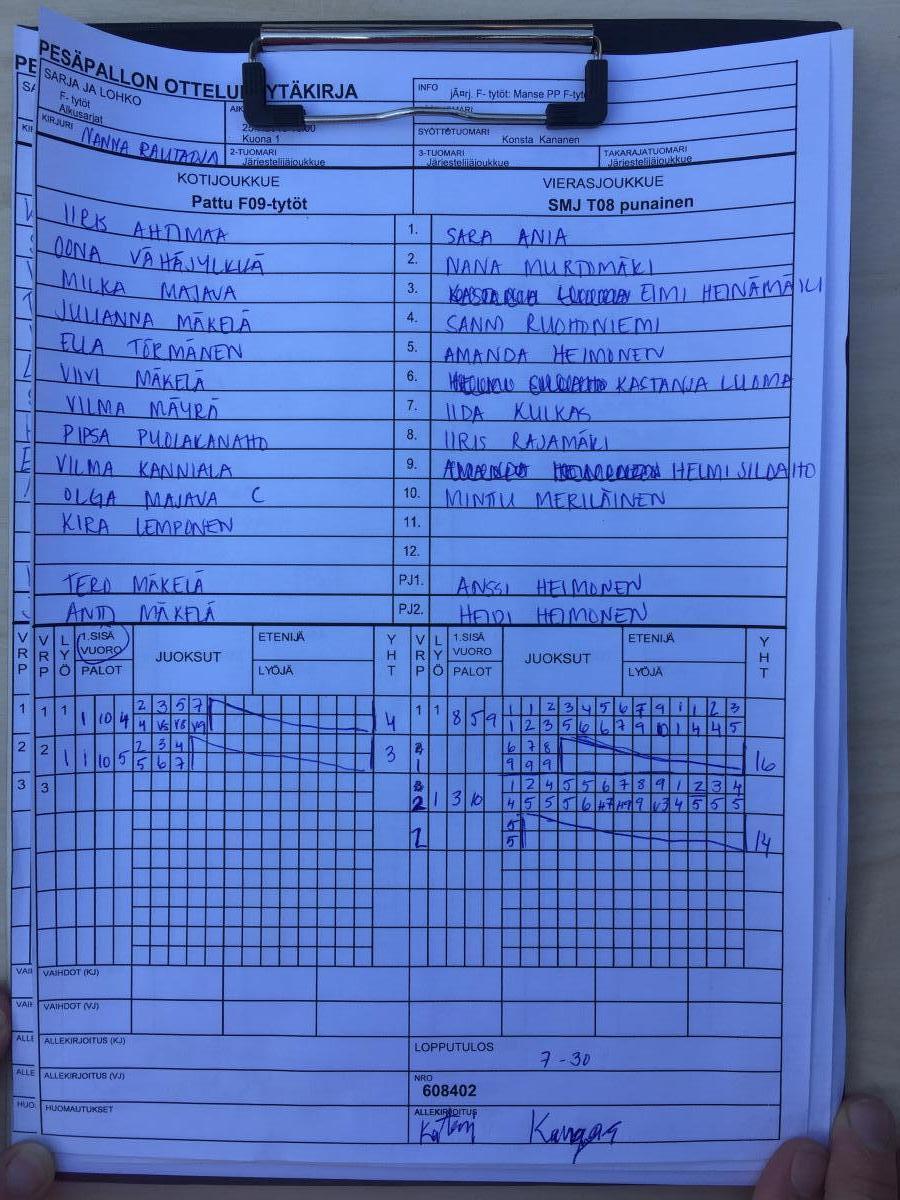 PESÄPALLON OTTELUPÖYTÄKIRJA
SARJA JA LOHKO
F- tytöt
Alkusarjat
INFO jÃ¤rj. F- tytöt: Manse PP F-tytö
Kuona 1
SYÖTTÖTUOMARI
Konsta Kananen
KIRJURI NANNA RAUTAOJA
2-TUOMARI
Järjestelijäjoukkue
3-TUOMARI
Järjestelijäjoukkue
TAKARAJATUOMARI
Järjestelijäjoukkue
KOTIJOUKKUE VIERASJOUKKUE
Pattu F09-tytöt SMJ T08 punainen
IIRIS AHTIMAA 1. SARA ANIA
OONA VÄHÄJYLKKÄ 2. NANA MURTOMÄKI
MILKA MAJAVA 3. EIMI HEINÄMÄKI
JULIANNA MÄKELÄ 4. SANNI RUOHONIEMI
ELLA TÖRMÄNEN 5. AMANDA HEIMONEN
VIIVI MÄKELÄ 6. KASTANJA LUOMA
VILMA MÄYRÄ 7. IIDA KUIKAS
PIPSA PUOLAKANAHO 8. IIRIS RAJAMÄKI
VILMA KANNIALA 9. HELMI SILOAHO
OLGA MAJAVA C 10. MINTTU MERILÄINEN
KIRA LEMPONEN 11.
12.
TERO MÄKELÄ PJ1. ANSSI HEIMONEN
ANTTI MÄKELÄ PJ2. HEIDI HEIMONEN
VRP VRP LYÖ 1.SISÄ VUORO PALOT JUOKSUT ETENIJÄ LYÖJÄ YHT VRP LYÖ 1.SISÄ VUORO PALOT JUOKSUT ETENIJÄ LYÖJÄ YHT
1 1 1 1 10 4 2 3 5 7 4 1 1 8 5 9 1 1 2 3 4 5 6 7 9 1 1 2 3
4 V5 V8 V9 1 2 3 5 6 6 7 9 10 1 4 4 5
2 2 1 1 10 5 2 3 4 3 1 6 7 8 16
5 6 7 9 9 9
3 3 2 1 3 10 1 2 4 5 5 6 7 8 9 1 2 3 4
4 5 5 5 6 H7 H9 9 V3 4 5 5 5
2 5 14
5
VAIHDOT (KJ)
VAIHDOT (VJ)
ALLEKIRJOITUS (KJ)
LOPPUTULOS
7 - 30
ALLEKIRJOITUS (VJ)
NRO
608402
HUOMAUTUKSET
ALLEKIRJOITUS
Kangas